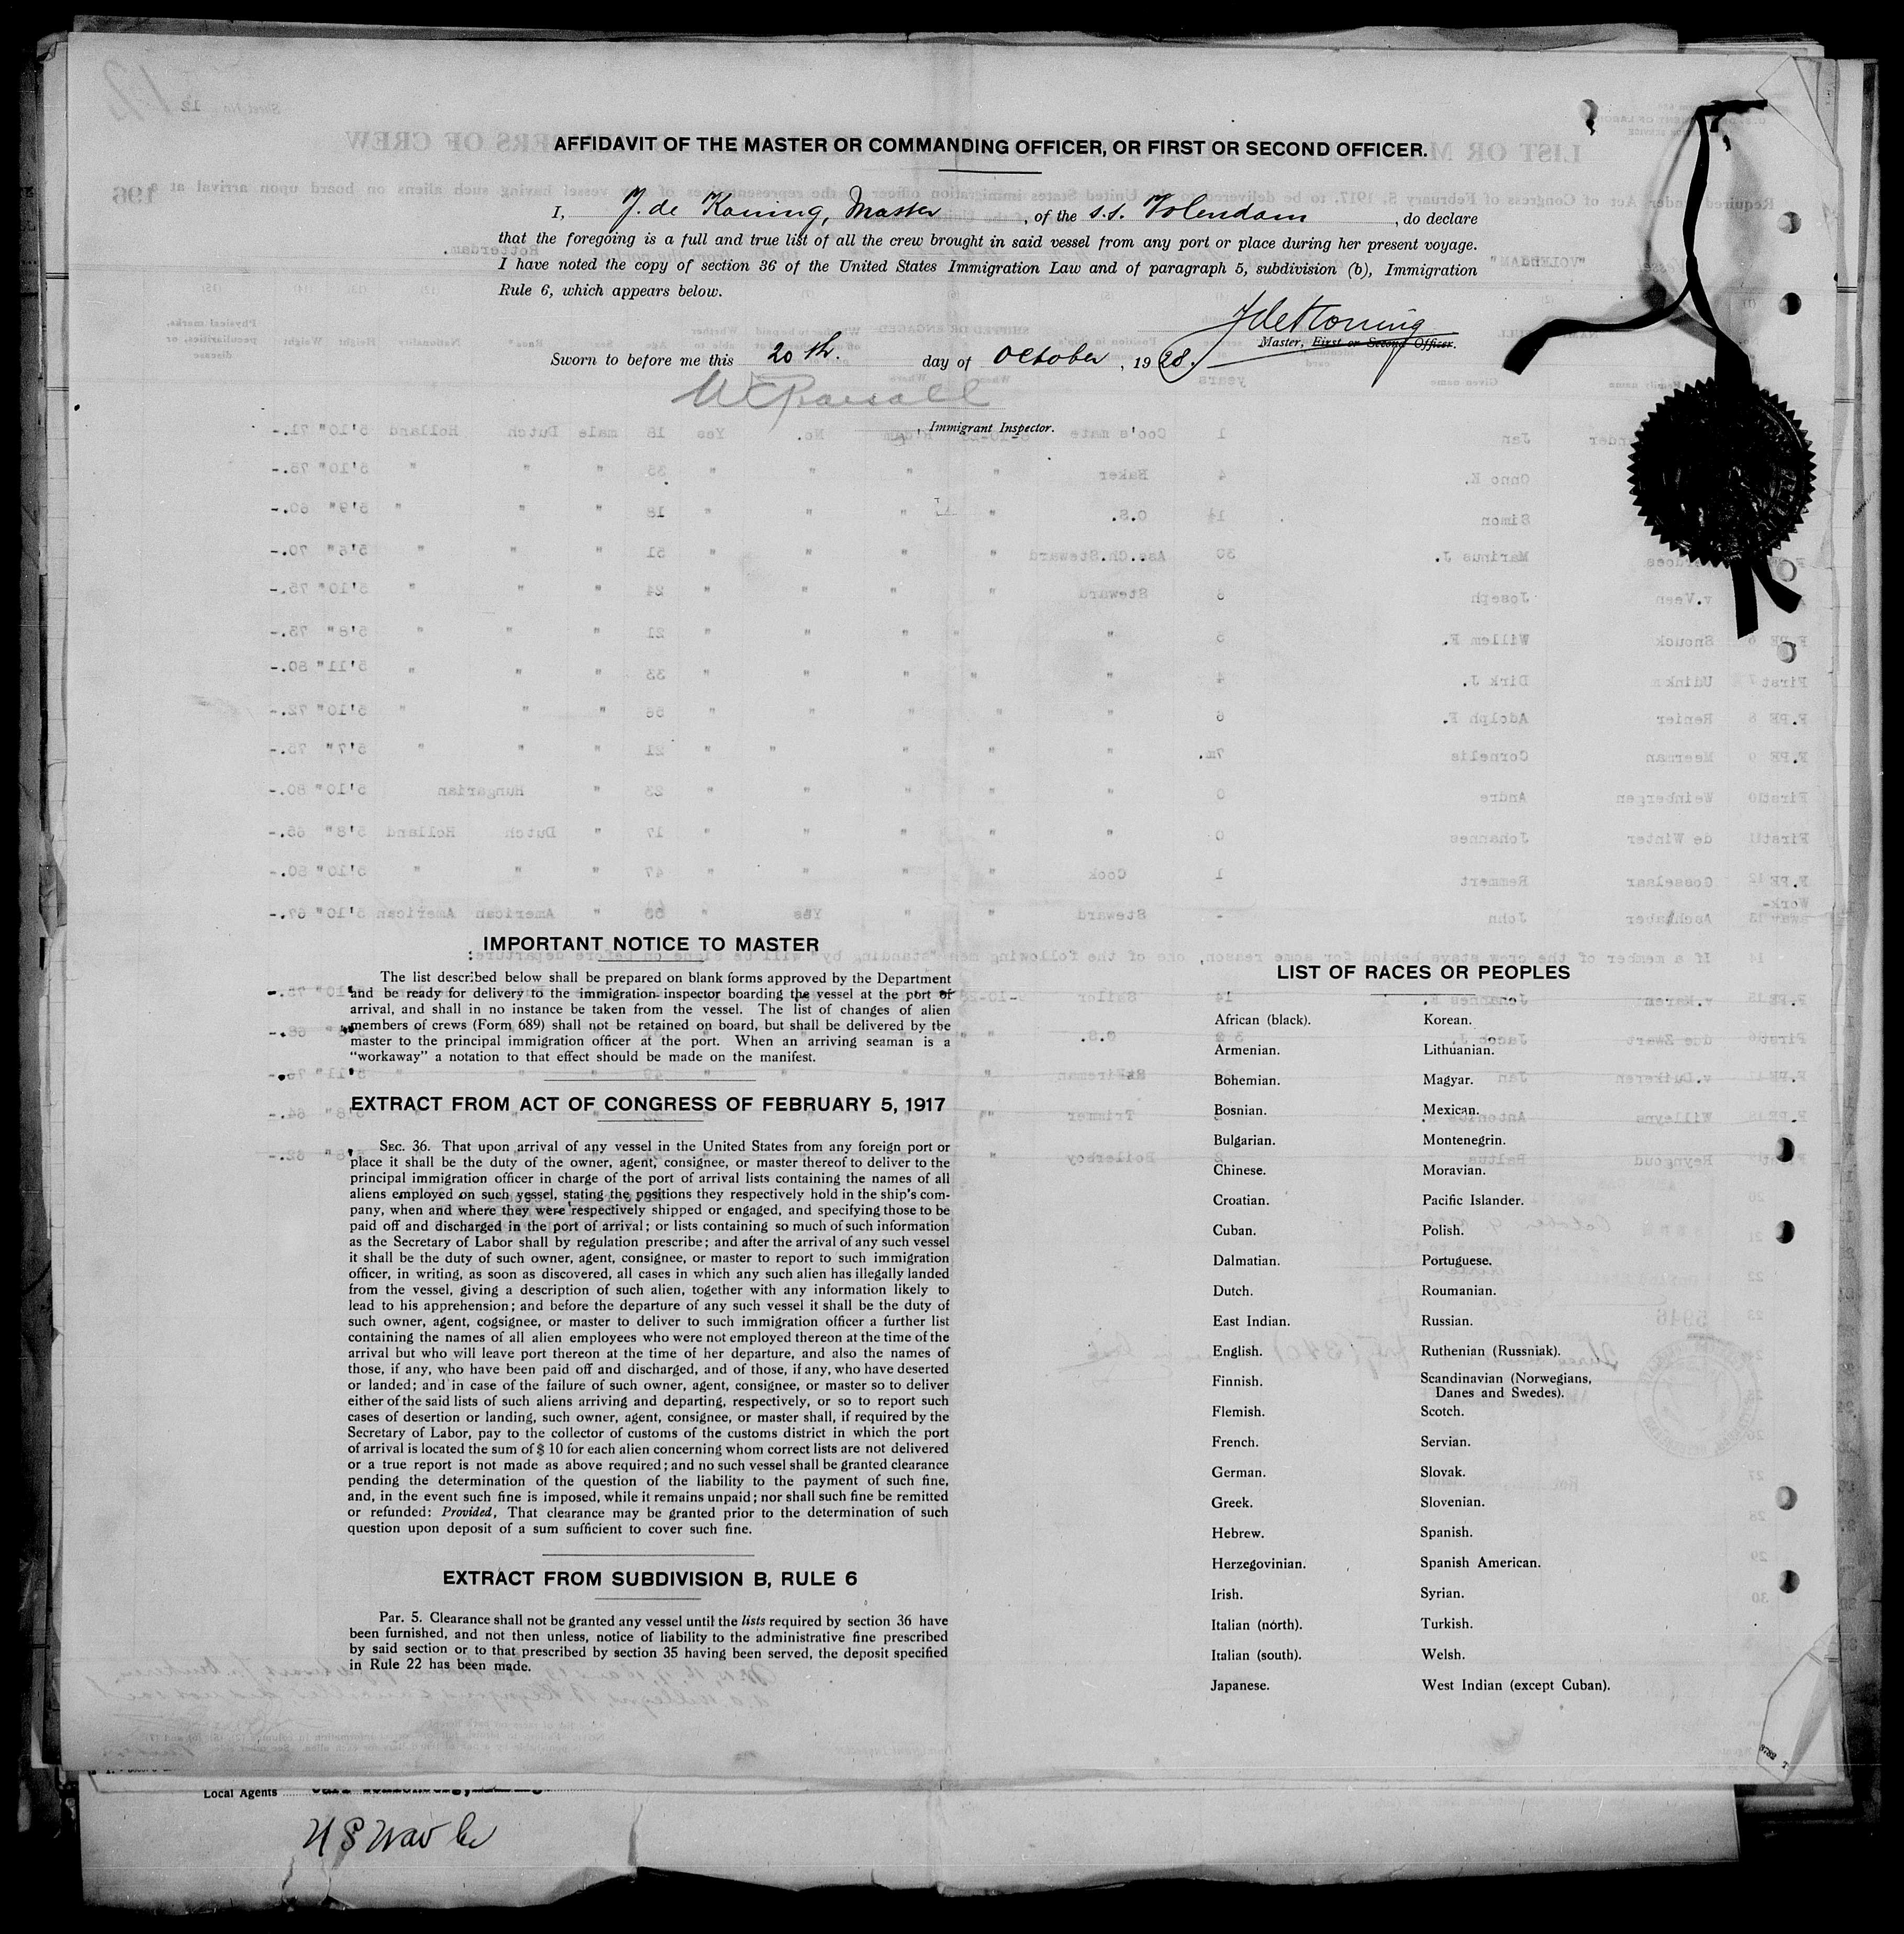 AFFIDAVIT OF THE MASTER OR COMMANDING OFFICER, OR FIRST OR SECOND OFFICER.
I, J. de Koning, Master, of the s.s. Volendam, do declare
that the foregoing is a full and true list of all the crew brought in said vessel from any port or place during her present voyage.
I have noted the copy of section 36 of the United States Immigration Law and of paragraph 5, subdivision (b), Immigration
Rule 6, which appears below.
J de Koning
Master, First or Second Officer.
Sworn to before me this 20th. day of October, 1928.
, Immigrant Inspector.
IMPORTANT NOTICE TO MASTER
The list described below shall be prepared on blank forms approved by the Department
and be ready for delivery to the immigration inspector boarding the vessel at the port of
arrival, and shall in no instance be taken from the vessel. The list of changes of alien
members of crews (Form 689) shall not be retained on board, but shall be delivered by the
master to the principal immigration officer at the port. When an arriving seaman is a
“workaway” a notation to that effect should be made on the manifest.
EXTRACT FROM ACT OF CONGRESS OF FEBRUARY 5, 1917
SEC. 36. That upon arrival of any vessel in the United States from any foreign port or
place it shall be the duty of the owner, agent, consignee, or master thereof to deliver to the
principal immigration officer in charge of the port of arrival lists containing the names of all
aliens employed on such vessel, stating the positions they respectively hold in the ship's com-
pany, when and where they were respectively shipped or engaged, and specifying those to be
paid off and discharged in the port of arrival; or lists containing so much of such information
as the Secretary of Labor shall by regulation prescribe; and after the arrival of any such vessel
it shall be the duty of such owner, agent, consignee, or master to report to such immigration
officer, in writing, as soon as discovered, all cases in which any such alien has illegally landed
from the vessel, giving a description of such alien, together with any information likely to
lead to his apprehension; and before the departure of any such vessel it shall be the duty of
such owner, agent, cogsignee, or master to deliver to such immigration officer a further list
containing the names of all alien employees who were not employed thereon at the time of the
arrival but who will leave port thereon at the time of her departure, and also the names of
those, if any, who have been paid off and discharged, and of those, if any, who have deserted
or landed; and in case of the failure of such owner, agent, consignee, or master so to deliver
either of the said lists of such aliens arriving and departing, respectively, or so to report such
cases of desertion or landing, such owner, agent, consignee, or master shall, if required by the
Secretary of Labor, pay to the collector of customs of the customs district in which the port
of arrival is located the sum of $ 10 for each alien concerning whom correct lists are not delivered
or a true report is not made as above required; and no such vessel shall be granted clearance
pending the determination of the question of the liability to the payment of such fine,
and, in the event such fine is imposed, while it remains unpaid; nor shall such fine be remitted
or refunded: Provided, That clearance may be granted prior to the determination of such
question upon deposit of a sum sufficient to cover such fine.
EXTRACT FROM SUBDIVISION B, RULE 6
Par. 5. Clearance shall not be granted any vessel until the lists required by section 36 have
been furnished, and not then unless, notice of liability to the administrative fine prescribed
by said section or to that prescribed by section 35 having been served, the deposit specified
in Rule 22 has been made.
LIST OF RACES OR PEOPLES
African (black).
Armenian.
Bohemian.
Bosnian.
Bulgarian.
Chinese.
Croatian.
Cuban.
Dalmatian.
Dutch.
East Indian.
English.
Finnish.
Flemish.
French.
German.
Greek.
Hebrew.
Herzegovinian.
Irish.
Italian (north).
Italian (south).
Japanese.
Korean.
Lithuanian.
Magyar.
Mexican.
Montenegrin.
Moravian.
Pacific Islander.
Polish.
Portuguese.
Roumanian.
Russian.
Ruthenian (Russniak).
Scandinavian (Norwegians,
Danes and Swedes).
Scotch.
Servian.
Slovak.
Slovenian.
Spanish.
Spanish American.
Syrian.
Turkish.
Welsh.
West Indian (except Cuban).
Local Agents